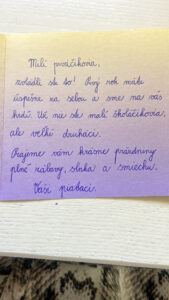 Milí prváčikovia,
zvládli ste to! Prvý rok máte
úspešne za sebou a sme na vás
hrdí. Už nie ste malí školáčikovia,
ale veľkí druháci.
Prajeme vám krásne prázdniny
plné zábavy, slnka a smiechu.
Vaši piataci.